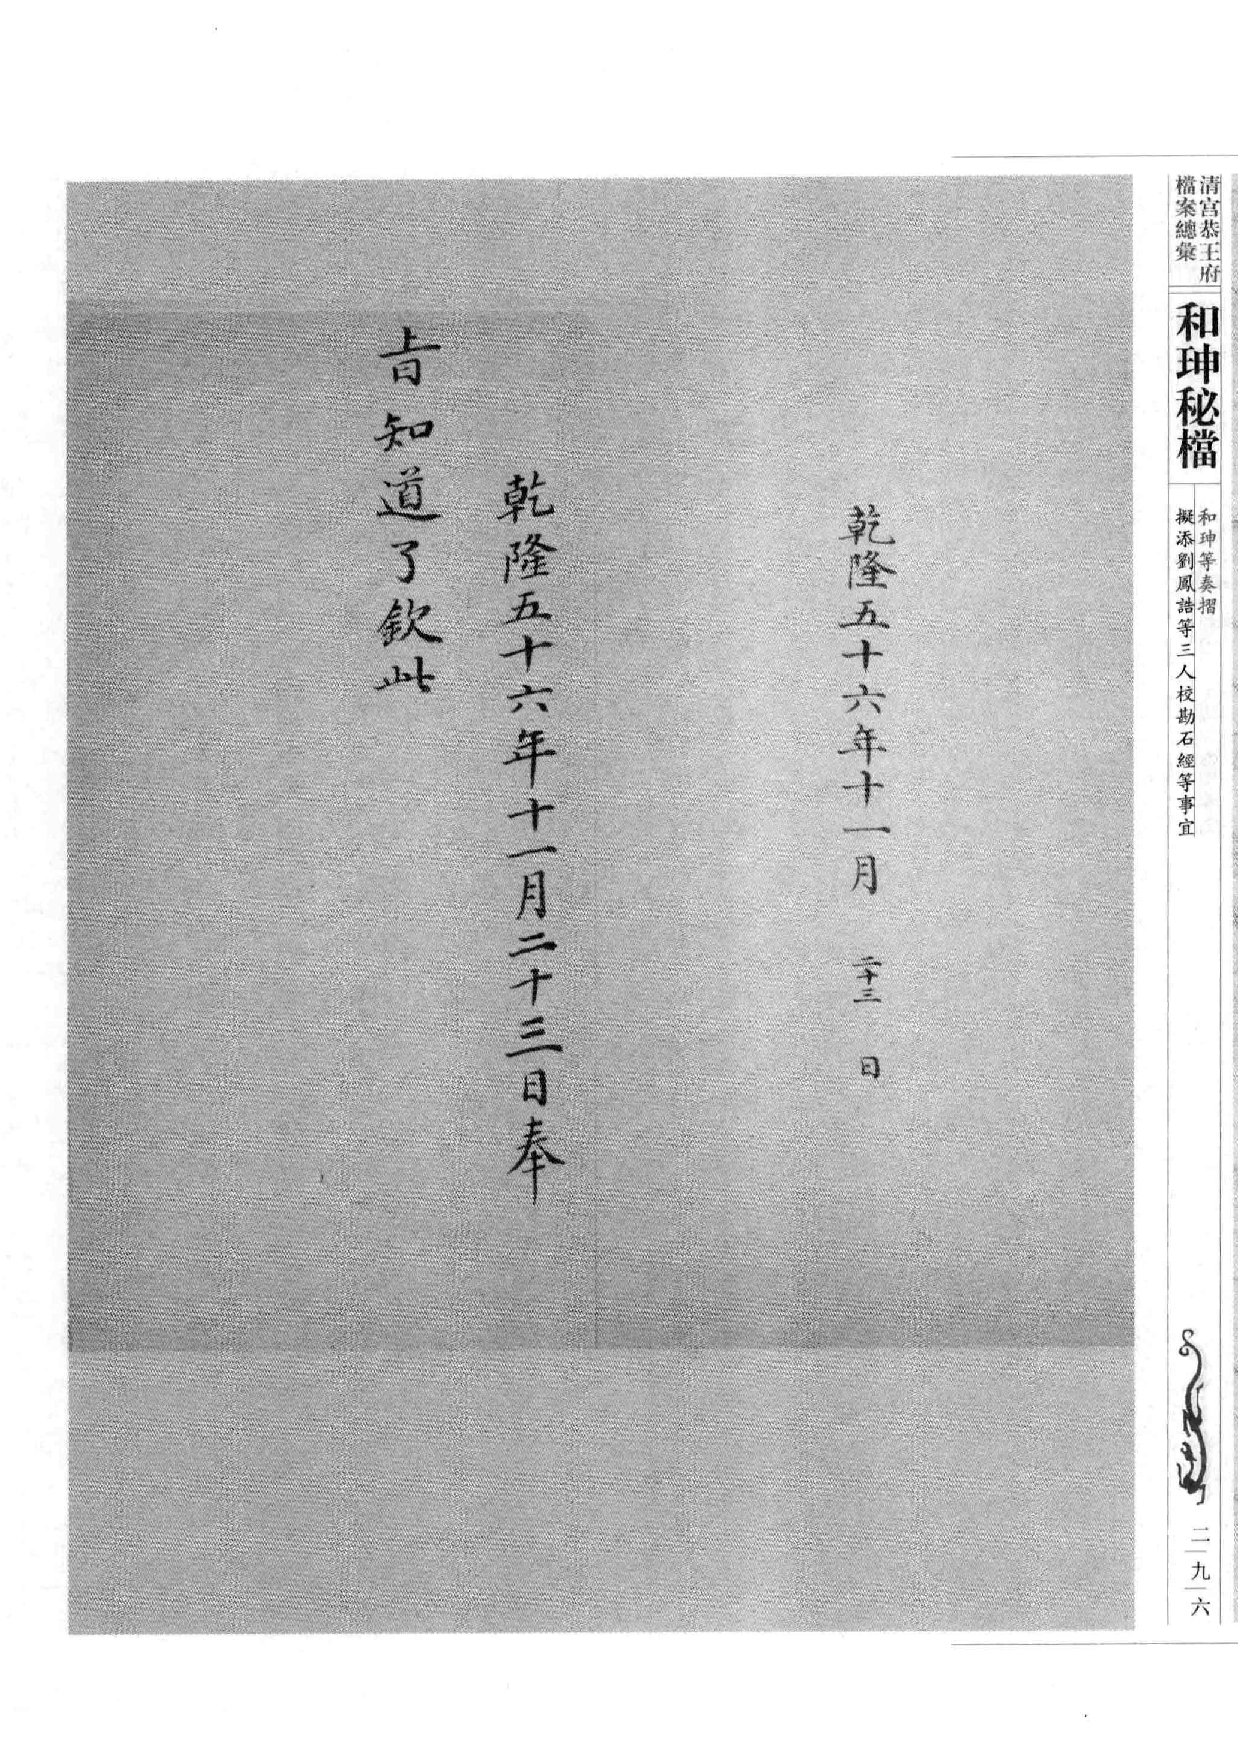 清宮恭王府
檔案總彙
和珅秘檔
和珅等奏摺
擬添劉鳳誥等三人校勘石經等事宜
二九六
乾隆五十六年十一月 二十三 日
乾隆五十六年十一月二十三日奉
旨知道了欽此